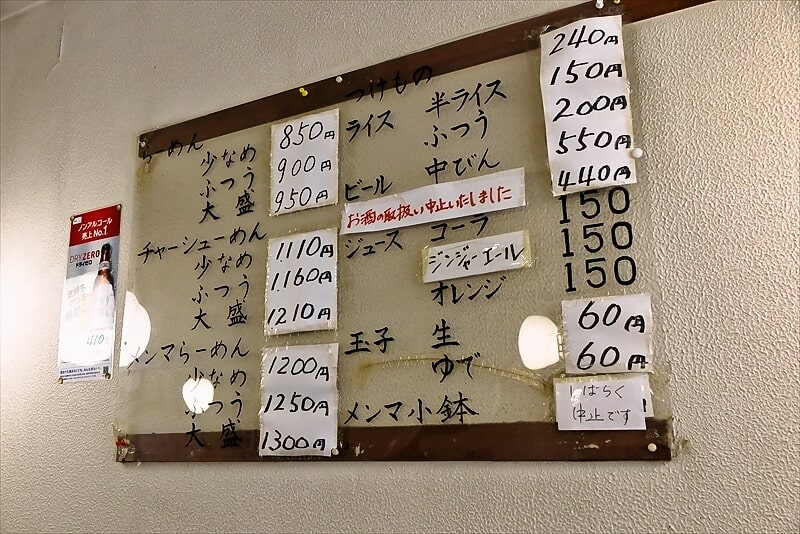 らーめん
少なめ 850円
ふつう 900円
大盛 950円
チャーシューめん
少なめ 1110円
ふつう 1160円
大盛 1210円
メンマらーめん
少なめ 1200円
ふつう 1250円
大盛 1300円
つけもの 240円
ライス 半ライス 150円
ふつう 200円
ビール 中びん 550円
440円
お酒の取扱い中止いたしました
ジュース コーラ 150
ジンジャーエール 150
オレンジ 150
玉子 生 60円
ゆで 60円
メンマ小鉢
しばらく
中止です
ノンアルコール
売上No.1
DRY ZERO
ドライゼロ